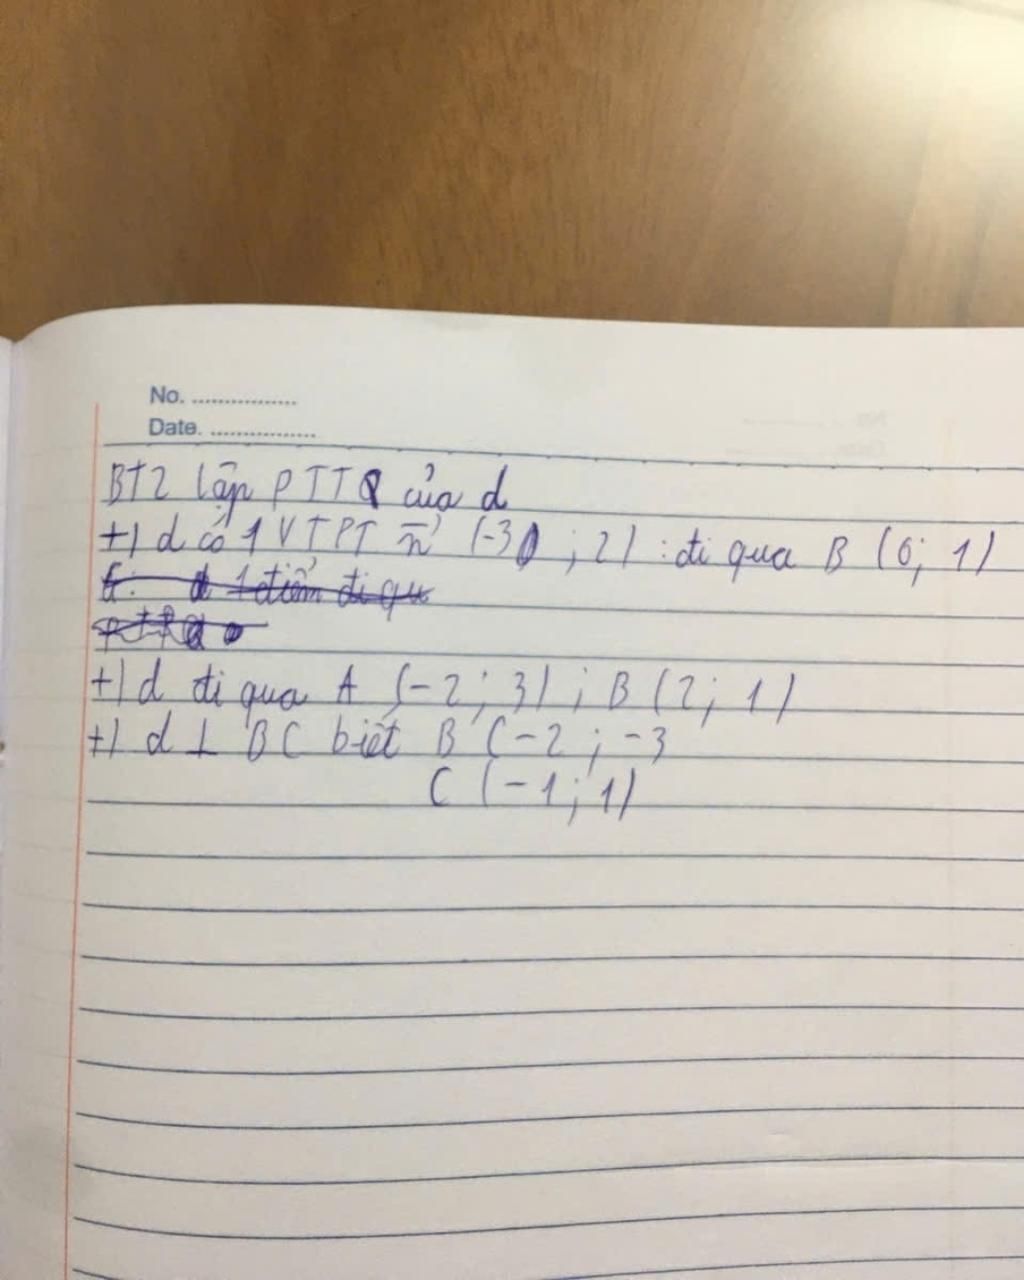 No. ................
Date. ................
BT2 lập PTTQ của d
+) d có 1 VTPT n⃗ (-3 ; 2) : đi qua B (0; 1)
+) d đi qua A (-2; 3) ; B (2; 1)
+) d ⊥ BC biết B (-2 ; -3
C (-1; 1)